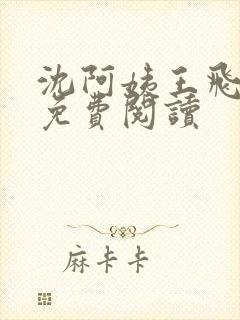 沈阿姨王飛
免費閱讀
麻卡卡